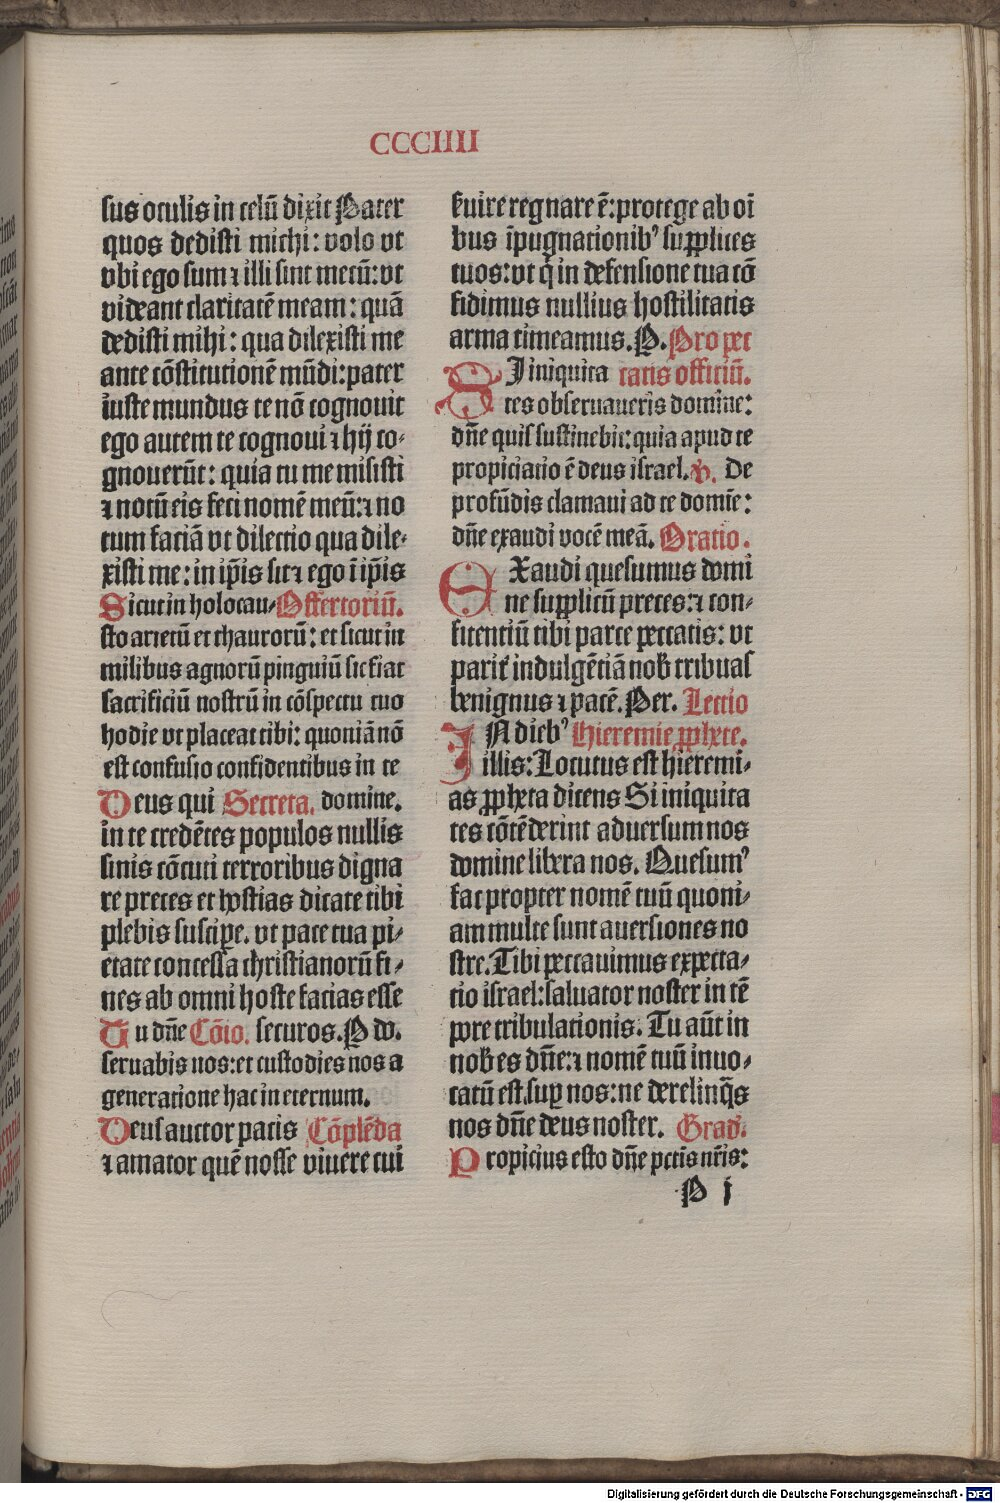 CCCIIII
sus oculis in celū dixit Pater
quos dedisti michi: volo vt
vbi ego sum ⁊ illi sint mecū: vt
videant claritatē meam: quā
dedisti mihi: qua dilexisti me
ante cōstitutionē mūdi: pater
iuste mundus te nō cognouit
ego autem te cognoui ⁊ hij co⸗
gnouerūt: quia tu me misisti
⁊ notū eis feci nomē meū: ⁊ no
tum faciā vt dilectio qua dile⸗
xisti me: in ip̄is sit ⁊ ego ī ip̄is
Sicut in holocau⸗ Offertoriū.
sto arietū et thaurorū: et sicut in
milibus agnorū pinguiū sic fiat
sacrificiū nostrū in cōspectu tuo
hodie vt placeat tibi: quoniā nō
est confusio confidentibus in te
Deus qui Secreta. domine.
in te credētes populos nullis
sinis cōcuti terroribus digna
re preces et hostias dicate tibi
plebis suscipe. vt pace tua pi⸗
etate concessa christianorū fi⸗
nes ab omni hoste facias esse
Tu dn̄e Cōio. securos. P do.
seruabis nos: et custodies nos a
generatione hac in eternum.
Deus auctor pacis Cōplēda
⁊ amator quē nosse viuere cui
ẜuire regnare ē: protege ab oī
bus īpugnationibꝰ supplices
tuos: vt q̇ in defensione tua cō
fidimus nullius hostilitatis
arma timeamus. P. Pro pec
SI iniquita tatis officiū.
tes obseruaueris domine:
dn̄e quis sustinebit: quia apud te
propiciatio ē deus israel. v̄. De
profūdis clamaui ad te domīe:
dn̄e exaudi vocē meā. Oratio.
EXaudi quesumus domi
ne supplicū preces: ⁊ con⸗
fitentiū tibi parce peccatis: vt
parit̄ indulgētiā nob̄ tribuas
benignus ⁊ pacē. Per. Lectio
IN diebꝰ Hieremie ꝓphete.
illis: Locutus est hieremi⸗
as ꝓpheta dicens Si iniquita
tes cōtēderint aduersum nos
domine libera nos. Quesumꝰ
fac propter nomē tuū quoni⸗
am multe sunt auersiones no
stre. Tibi peccauimus expecta⸗
tio israel: saluator noster in tē
pore tribulationis. Tu aūt in
nob̄ es dn̄e: ⁊ nomē tuū inuo⸗
catū est sup̱ nos: ne derelinq̄s
nos dn̄e deus noster. Grad̄.
Propicius esto dn̄e pctis nr̄is:
P j
Digitalisierung gefördert durch die Deutsche Forschungsgemeinschaft - DFG